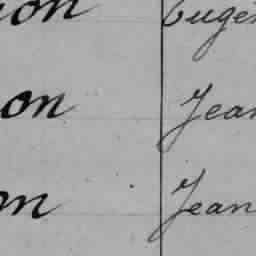 ion Eugè
on Jean
on Jean